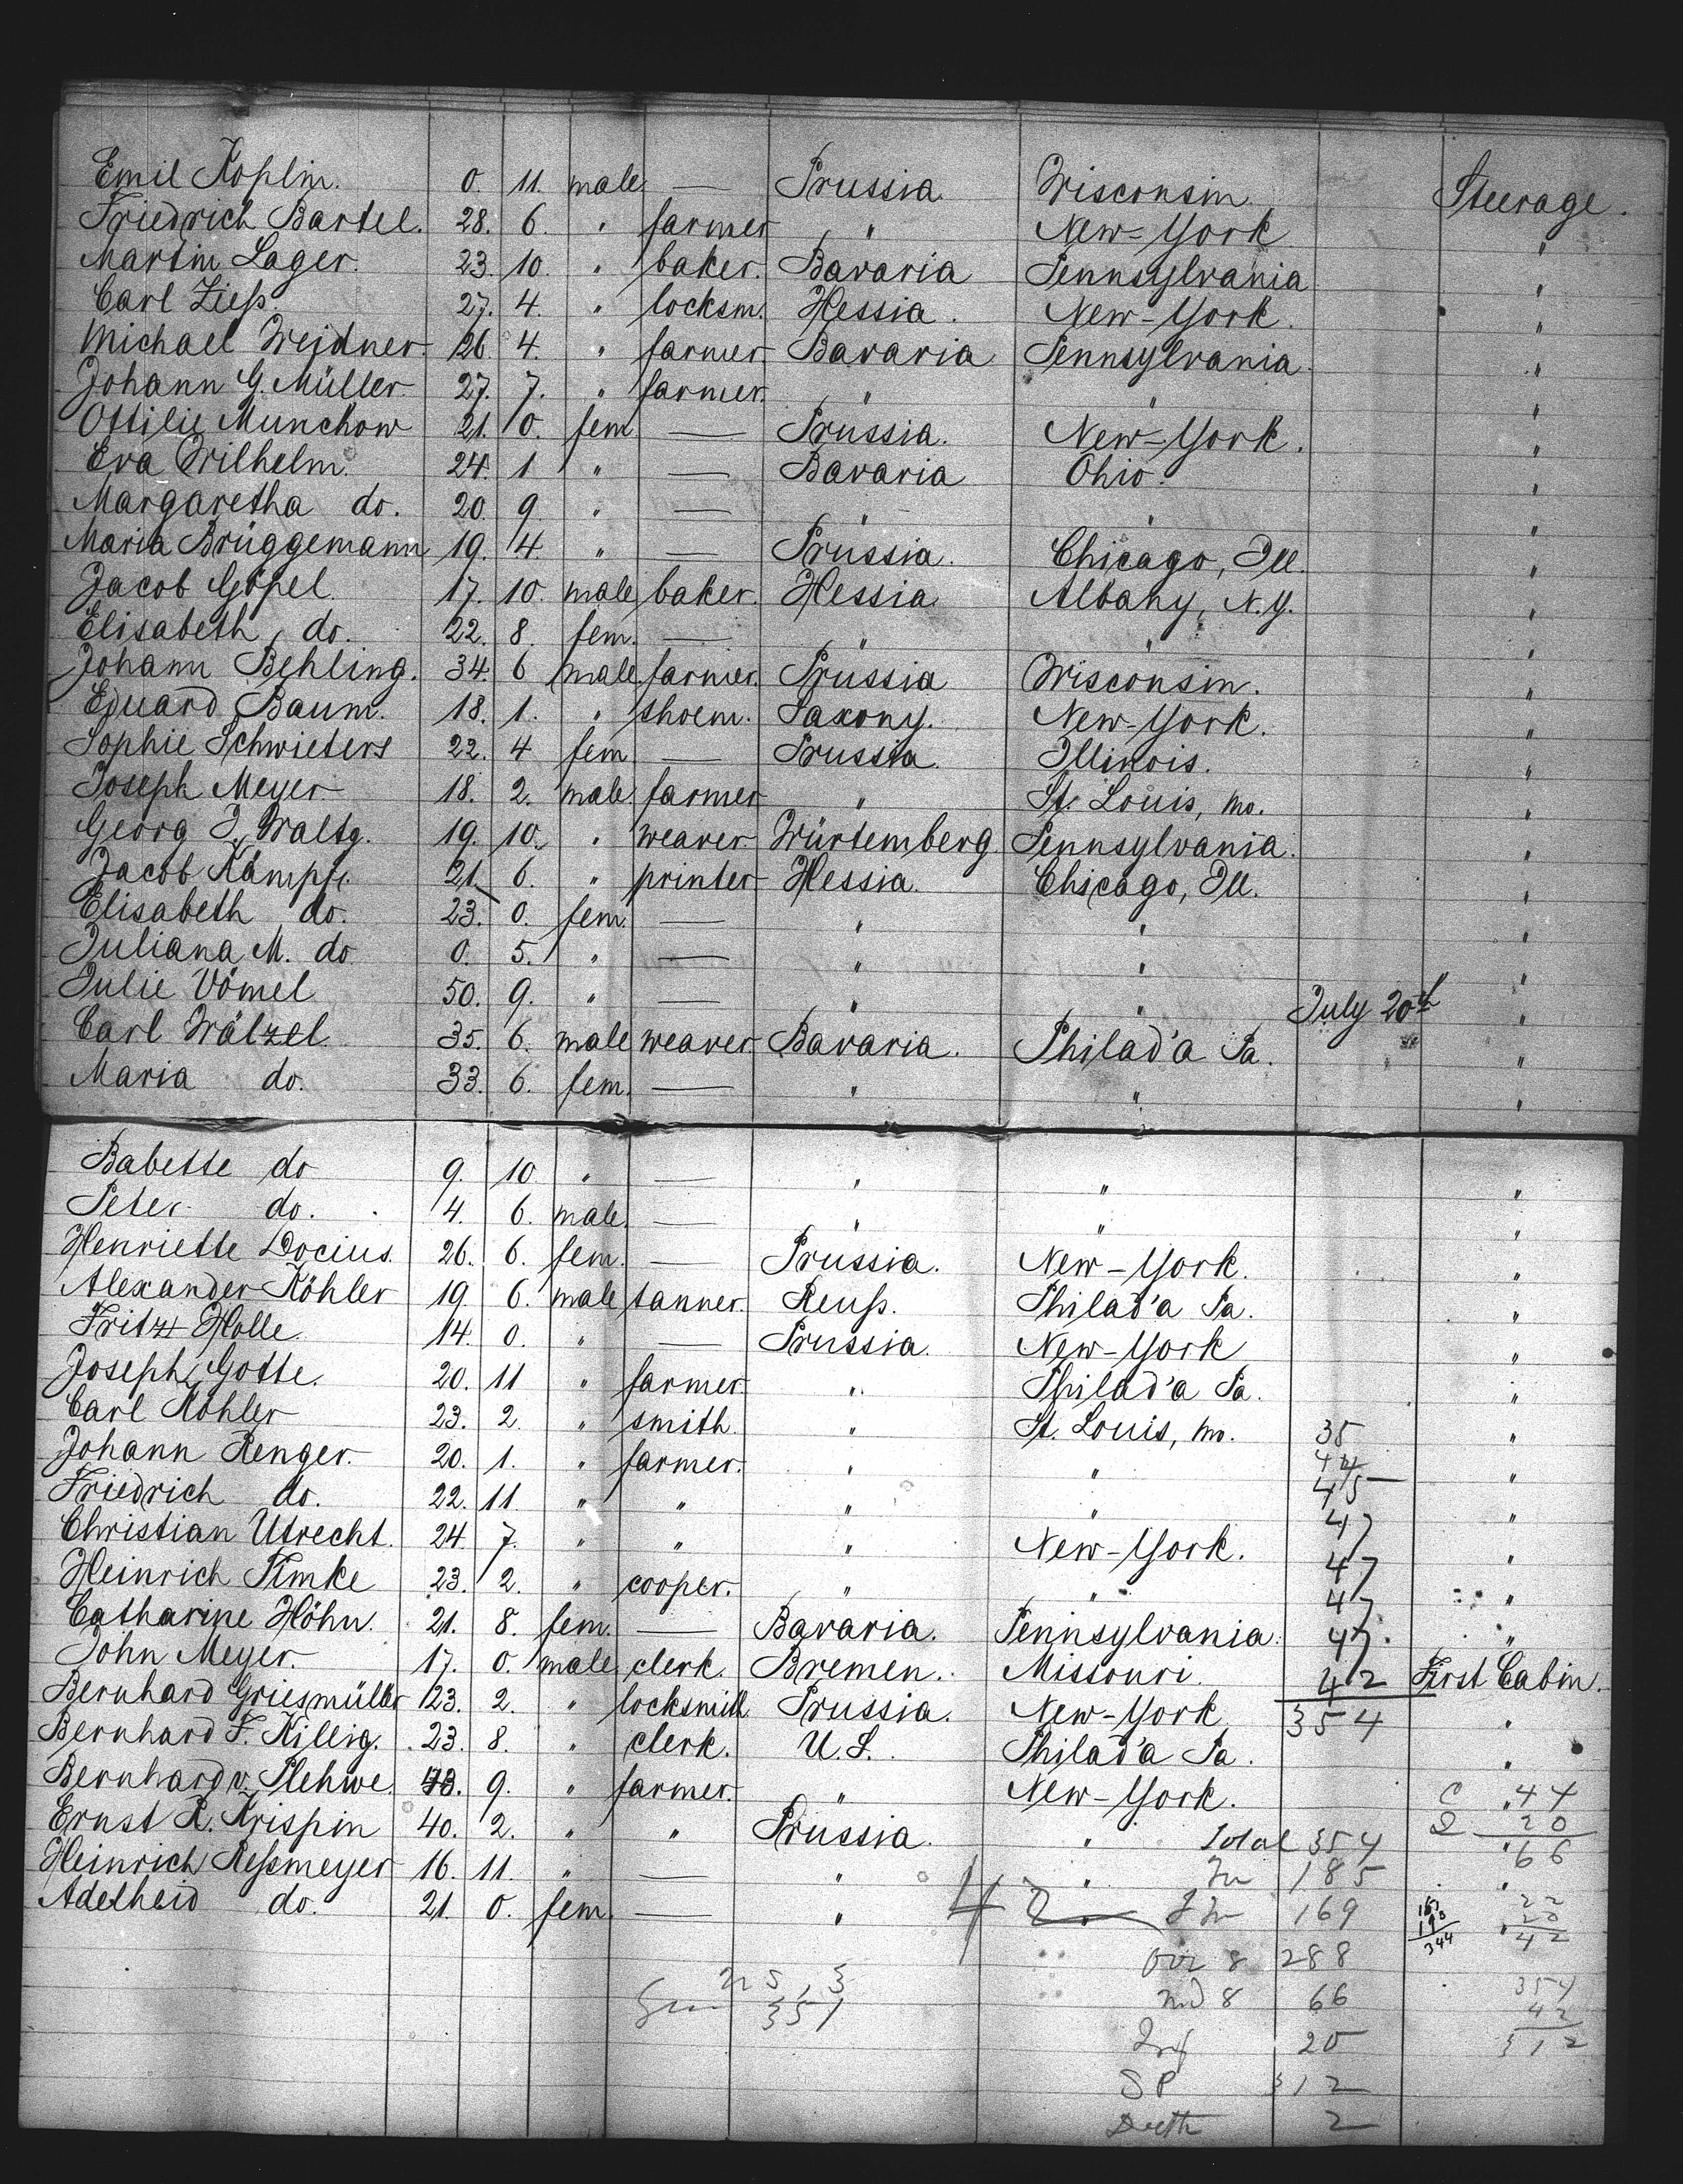 Emil Koplin. 0. 11. male — Prussia Wisconsin. Steerage.
Friedrich Bartel. 28. 6. " farmer " New-York "
Martin Lager. 23. 10. " baker. Bavaria Pennsylvania "
Carl Zieß 27. 4. " locksm. Hessia. New-York. "
Michael Weidner. 26. 4. " farmer Bavaria Pennsylvania. "
Johann G. Müller. 27. 7. " farmer. " " "
Ottilie Munchow 21. 0. fem — Prussia. New-York. "
Eva Wilhelm. 24. 1 " — Bavaria Ohio. "
Margaretha do. 20. 9. " — " " "
Maria Brüggemann 19. 4. " — Prussia. Chicago, Ill. "
Jacob Göpel. 17. 10. male baker. Hessia. Albany, N.Y. "
Elisabeth do. 22. 8. fem. — " " "
Johann Behling. 34. 6 male. farmer. Prussia Wisconsin. "
Eduard Baum. 18. 1. " shoem. Saxony. New-York. "
Sophie Schwieters 22. 4 fem — Prussia. Illinois. "
Joseph Meyer. 18. 2. male. farmer " St. Louis, Mo. "
Georg J. Waltz. 19. 10. " weaver. Würtemberg Pennsylvania. "
Jacob Kämpfe. 21. 6. " printer Hessia. Chicago, Ill. "
Elisabeth do. 23. 0. fem. — " " "
Juliana M. do 0. 5. " — " " "
Julie Vömel 50. 9. " — " " July 20th "
Carl Wälzel. 35. 6. male weaver Bavaria. Philad'a Pa. "
Maria do. 33. 6. fem. — " " "
Babette do 9. 10. " — " " "
Peter do. 4. 6. male. — " " "
Henriette Docius. 26. 6. fem. — Prussia. New-York. "
Alexander Köhler 19. 6. male tanner. Reuß. Philad'a Pa. "
Fritz Holle. 14. 0. " — Prussia. New-York "
Joseph Gotte. 20. 11 " farmer. " Philad'a Pa. "
Carl Köhler 23. 2. " smith. " St. Louis, Mo. 35 "
Johann Renger. 20. 1. " farmer. " " 44 "
Friedrich do. 22. 11. " " " " 45 "
Christian Utrecht. 24. 7. " " " New-York. 47 "
Heinrich Timke 23. 2. " cooper. " " 47 "
47
Catharine Höhn. 21. 8. fem. — Bavaria. Pennsylvania. 47. "
John Meyer. 17. 0. male clerk. Bremen. Missouri. 42 First Cabin.
Bernhard Griesmüller 23. 2. " locksmith Prussia. New-York. 354 "
Bernhard F. Killig. 23. 8. " clerk. U.S. Philad'a Pa. "
Bernhard v. Plehwe. 9. " farmer. " New-York. C "44
Ernst R. Krispin 40. 2. " " Prussia. " Total 354 20
Heinrich Reßmeyer 16. 11. " — " " 185 66
Adelheid do. 21. 0. fem. — " 4 169 22
20
344 42
288
8 66 354
42
351 Inf 20 312
SP 312
Death 2